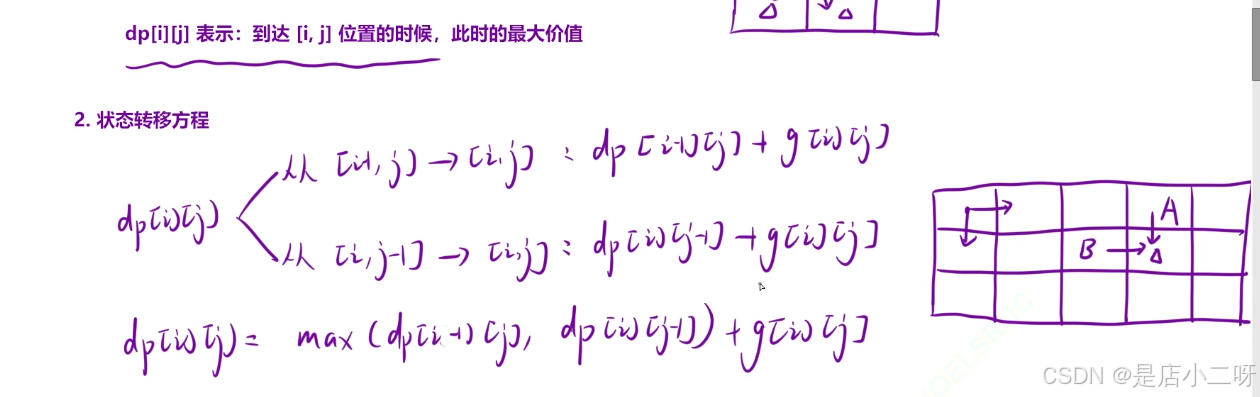 dp[i][j] 表示：到达 [i, j] 位置的时候，此时的最大价值
2. 状态转移方程
从 [i-1, j) → [i,j] : dp[i-1][j] + g[i][j]
dp[i][j]
从 [i, j-1] → [i,j] : dp[i][j-1] + g[i][j]
dp[i][j] = max (dp[i-1][j], dp[i][j-1]) + g[i][j]
A
B
CSDN @是店小二呀